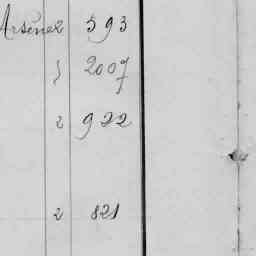 Arsène 2 593
2 2007
2 922
2 821